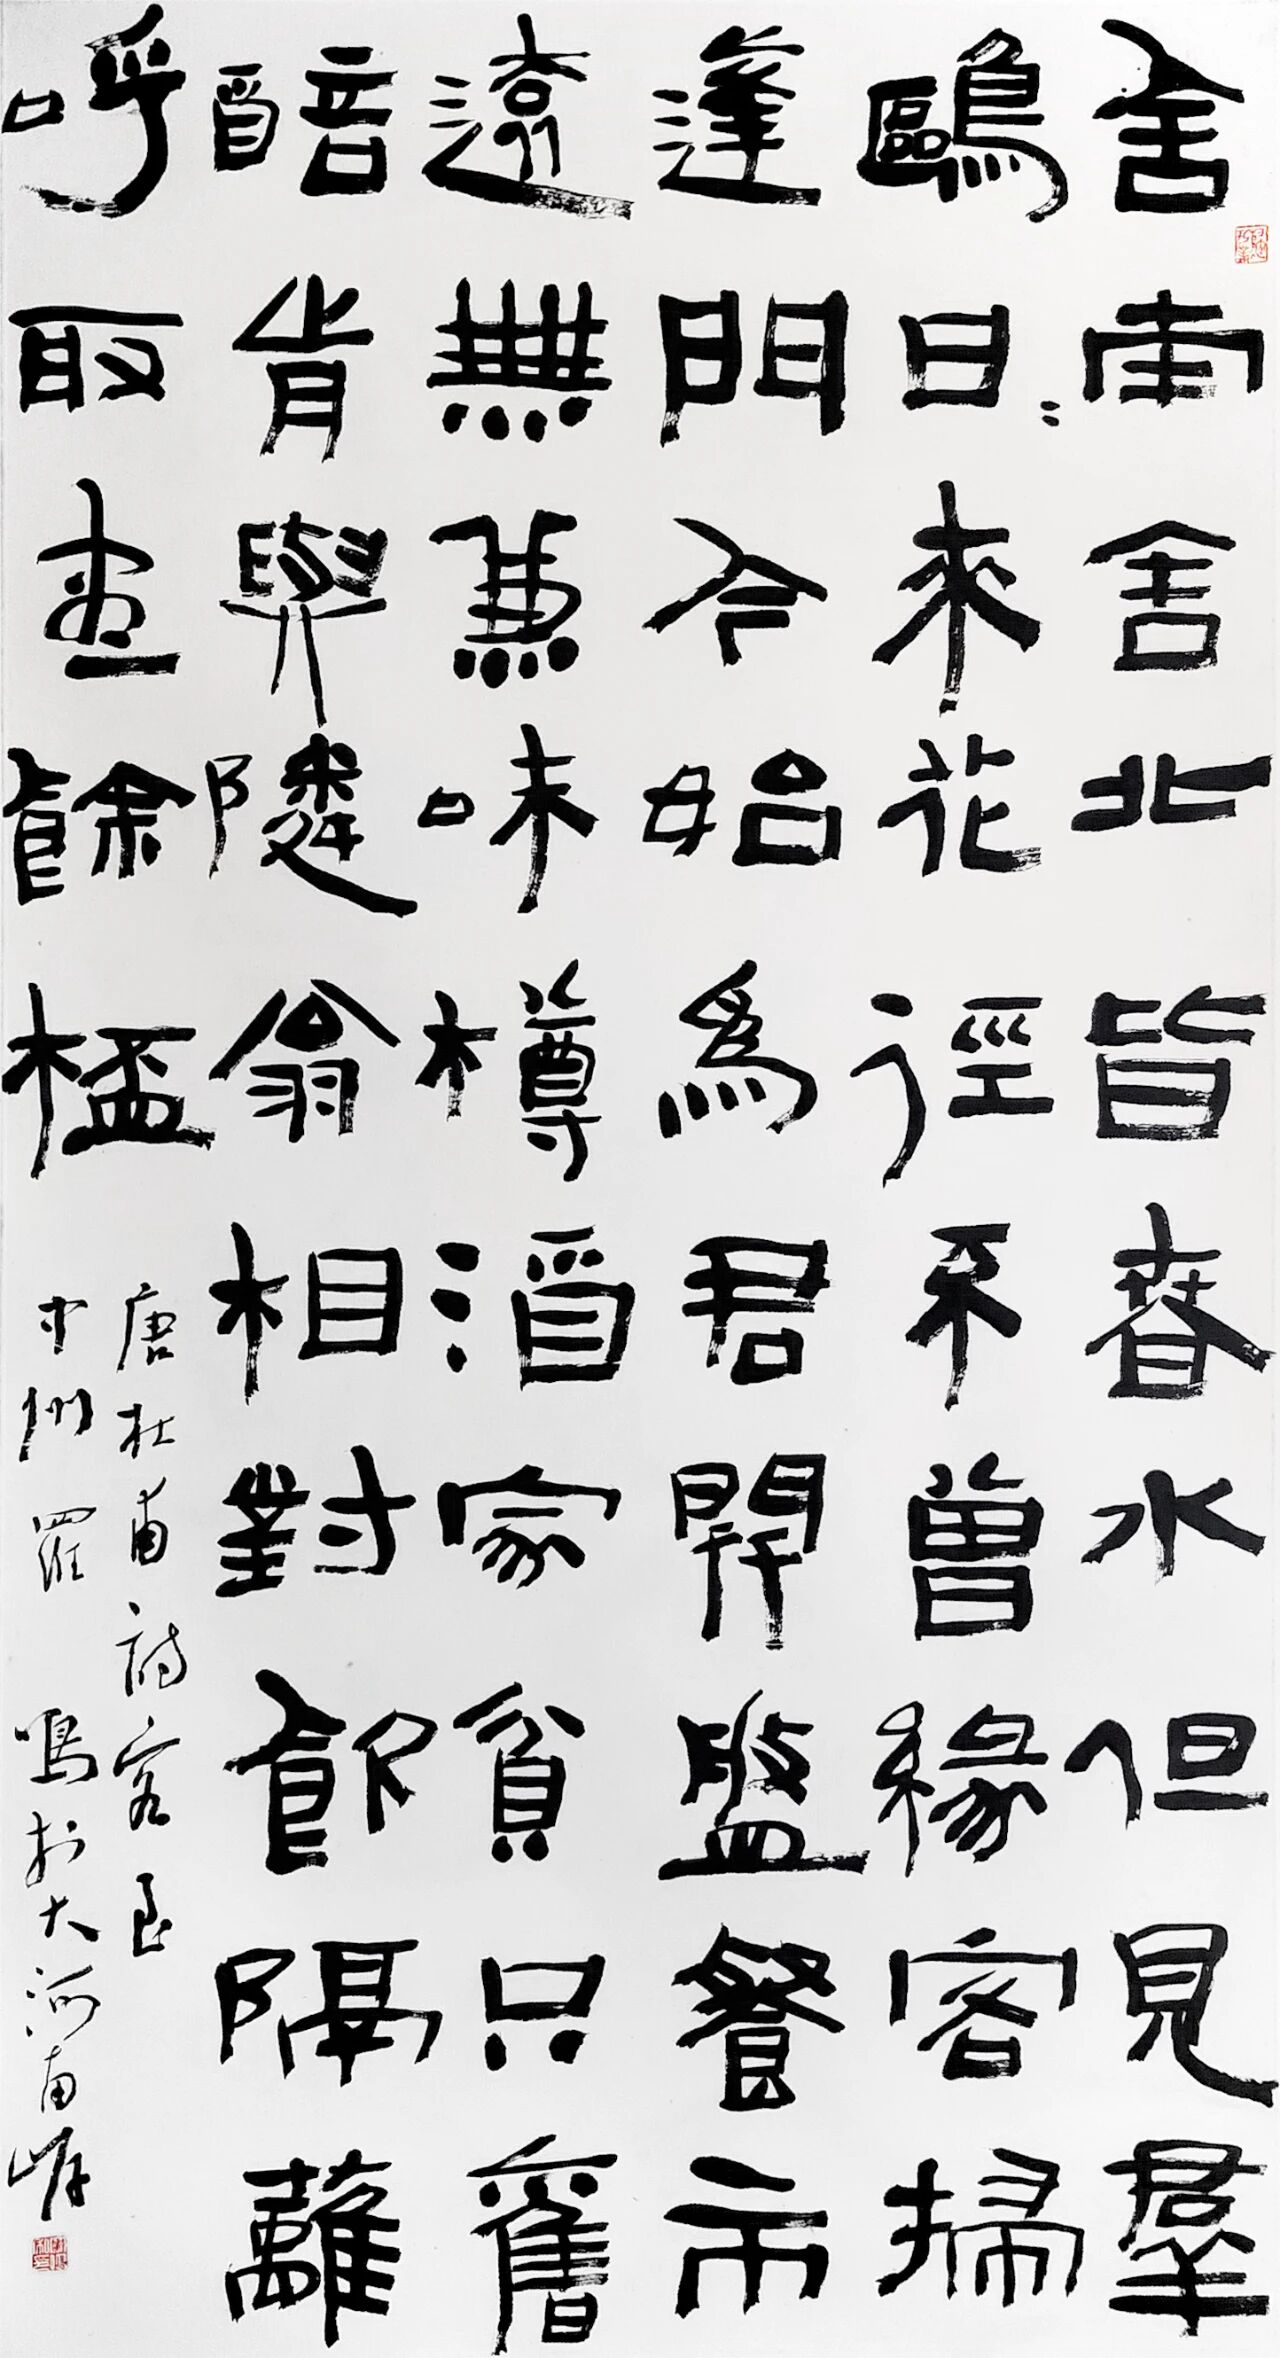 舍南舍北皆春水但見羣
鷗日〻來花徑不曾緣客掃
蓬門今始為君開盤餐市
遠無兼味樽酒家貧只舊
醅肯與隣翁相對飲隔籬
呼取盡餘桮
唐杜甫詩客至
中州羅鳴於大河南岸